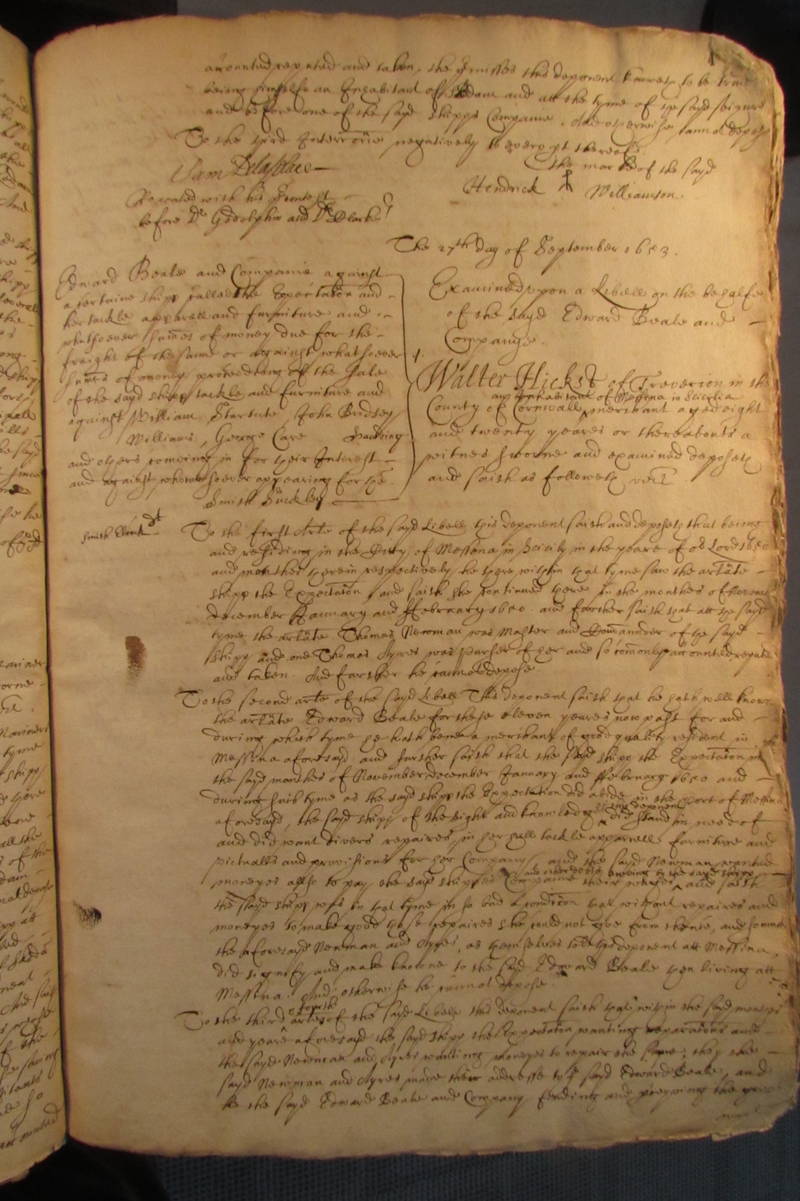 accounted reputed and taken, the premisses this deponent knoweth to be true
being himselfe an Inhabitant of and att the tyme of the sayd seizure
and before one of the sayd shipps Companie. And otherwise cannot depose
To the third Interrorie negatively
the marke of the sayd
Hendrick Williamson
Repeated with his
before Dr Godolphin and Dr Clark
The 27th day of September 1653.
Edward Beale and Companie against
a certaine shipp called the Expectation and
her tackle apparrell and furniture and
whatsoever summes of money due for the
freight of the same or against whatsoever
summes of money proceeding of the sale
of the sayd shipp tackle and furniture and
against William John
Williams, George Care
and others comeing in for their Interest
and against whomsoever appearing for the
Smith Buckley
Examined upon a Libell on the behalfe
of the sayd Edward Beale and
Companye.
1.
Walter Hickes of Treverion in the
County of Cornwall, merchant aged eight
and twenty yeares or thereabouts a
witnes sworne and examined deposeth
and saith as followeth vizt
To the first Arte of the sayd Libell this deponent saith and deposeth that being
and residing in the Citty of Messina in Sicily in the yeare of our Lord 1650
and monthes therein respectively he there within that tyme saw the arlate
shipp the Expectation, and saith she continued there in the monthes of November
December January and February 1650 and further saith that att the sayd
tyme the arlate Thomas Newman was Master and Commander of the sayd
shipp and one Thomas Ayres was purser of her and so comonly accounted reputed
and taken. And further he cannot depose
To the second arte of the sayd Libell This deponent saith that he hath well knowne
the arlate Edward Beale for these eleven yeares now past for and
during which tyme he hath bene a merchant of good quality resident in
Messina aforesayd and further saith that the sayd shipp the Expectation in
the sayd monthes of November December January and February 1650 and
during such tyme as the sayd shipp the Expectation did abide in the port of Messina
aforesayd, the sayd shipp of the sight and knowledge of this deponent did stand in neede of
and did want divers repaires in her hull tackle apparrell furniture and
victualls and provisions for her Company, and the sayd Newman wanted
moneyes allso to pay the sayd shipps Companie their wages, and saith
the sayd shipp was in that tyme in so bad a condition that without repaires and
moneyes to make good those repaires she could not goe from thence, and so much
the aforesayd Newman and Ayres, as themselves told the deponent att Messina,
did signify and make knowne to the sayd Edward Beale then living att
Messina. And otherwise he cannot depose
To the third and fourth artes of the sayd Libell this deponent saith that within the sayd monthes
and yeare aforesayd the sayd shipp the Expectation wanting reparations and
the sayd Newman and Ayres wanting moneyes to repair the same, they the
sayd Newman and Ayres made their addresse to the sayd Edward Beale, and
he the sayd Edward Beale and Company finding and perceiving the great